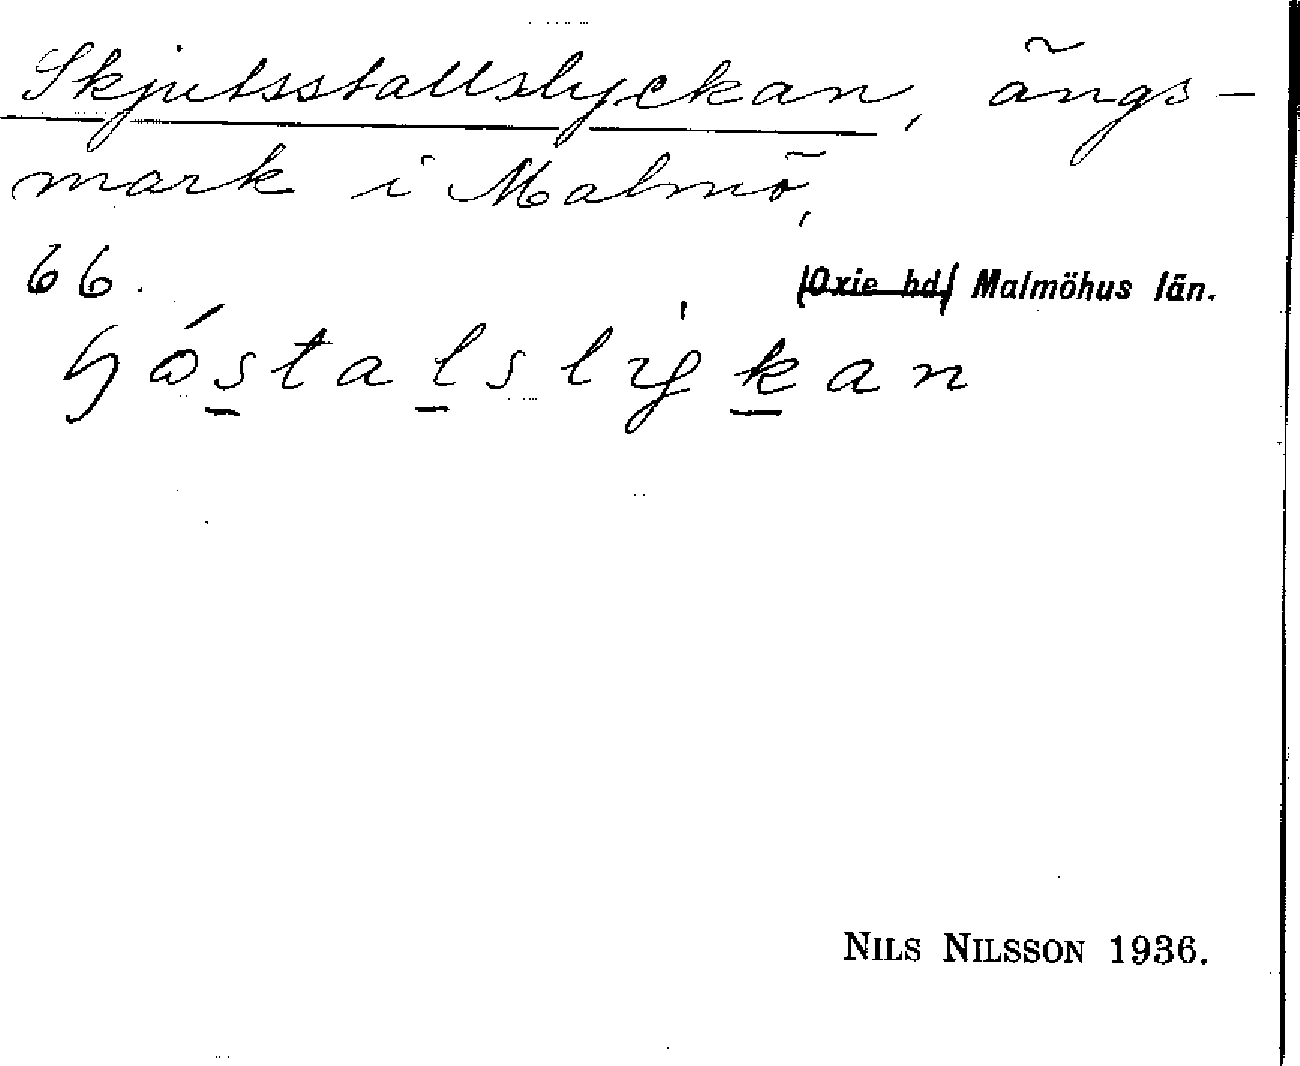 Skjutsstallslyckan, ängs-
mark i Malmö,
66. (Oxie hd) Malmöhus län.
NILS NILSSON 1936.